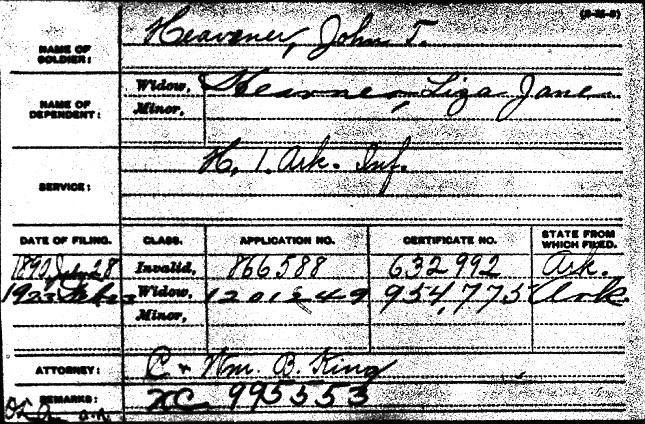 (3-M-6)
NAME OF SOLDIER: Heavener, John T.
NAME OF DEPENDENT: Widow, Heavener, Liza Jane
Minor,
SERVICE: H, 1. Ark. Inf.
DATE OF FILING. CLASS. APPLICATION NO. CERTIFICATE NO. STATE FROM WHICH FILED.
1890 July 28 Invalid, 866588 632992 Ark.
1923 Feb Widow, 1201249 954,775 Ark.
Minor,
ATTORNEY: C & Wm. B. King
REMARKS: XC 995553